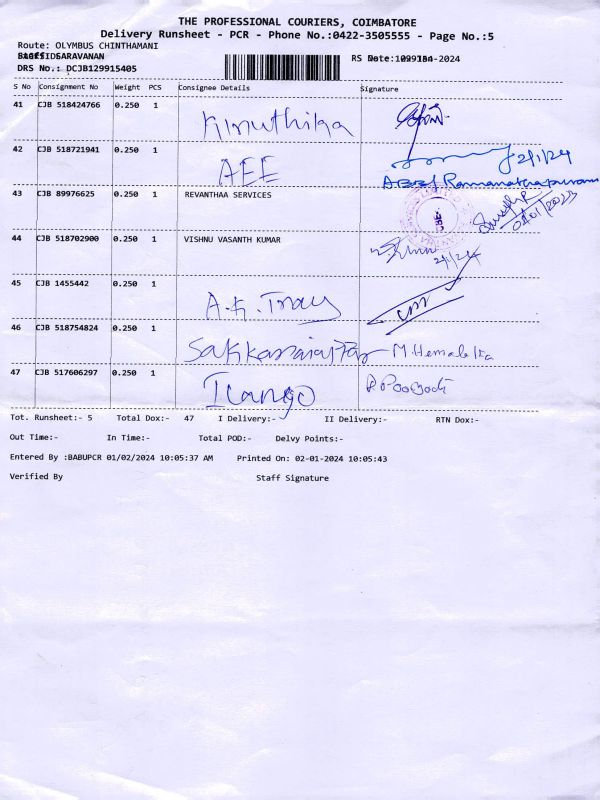 THE PROFESSIONAL COURIERS, COIMBATORE
Delivery Runsheet - PCR - Phone No.:0422-3505555 - Page No.:5
Route: OLYMBUS CHINTHAMANI
SARAVANAN
RS
-2024
DRS No.: DCJB129915405
S No Consignment No Weight PCS Consignee Details Signature
41 CJB 518424766 0.250 1
Kiruthika
42 CJB 518721941 0.250 1
AEE
2/1/24
Ramanathapuram
43 CJB 89976625 0.250 1 REVANTHAA SERVICES
44 CJB 518702900 0.250 1 VISHNU VASANTH KUMAR
2/1/24
45 CJB 1455442 0.250 1
A.K.
46 CJB 518754824 0.250 1
M. Hemalatha
47 CJB 517606297 0.250 1
Ilango
Tot. Runsheet:- 5 Total Dox:- 47 I Delivery:- II Delivery:- RTN Dox:-
Out Time:- In Time:- Total POD:- Delvy Points:-
Entered By :BABUPCR 01/02/2024 10:05:37 AM Printed On: 02-01-2024 10:05:43
Verified By Staff Signature